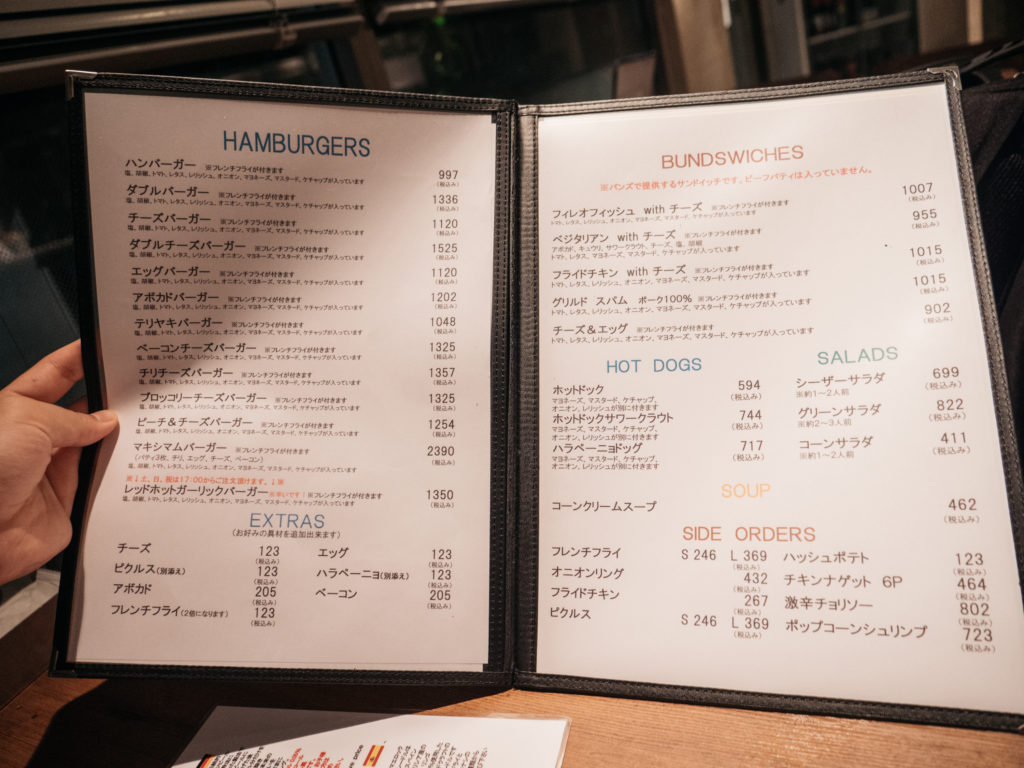 HAMBURGERS
ハンバーガー ※フレンチフライが付きます 997
塩, 胡椒, トマト, レタス, レリッシュ, オニオン, マヨネーズ, マスタード, ケチャップが入っています (税込み)
ダブルバーガー ※フレンチフライが付きます 1336
塩, 胡椒, トマト, レタス, レリッシュ, オニオン, マヨネーズ, マスタード, ケチャップが入っています (税込み)
チーズバーガー ※フレンチフライが付きます 1120
塩, 胡椒, トマト, レタス, レリッシュ, オニオン, マヨネーズ, マスタード, ケチャップが入っています (税込み)
ダブルチーズバーガー ※フレンチフライが付きます 1525
塩, 胡椒, トマト, レタス, レリッシュ, オニオン, マヨネーズ, マスタード, ケチャップが入っています (税込み)
エッグバーガー ※フレンチフライが付きます 1120
塩, 胡椒, トマト, レタス, レリッシュ, オニオン, マヨネーズ, マスタード, ケチャップが入っています (税込み)
アボカドバーガー ※フレンチフライが付きます 1202
塩, 胡椒, トマト, レタス, レリッシュ, オニオン, マヨネーズ, マスタード, ケチャップが入っています (税込み)
テリヤキバーガー ※フレンチフライが付きます 1048
塩, 胡椒, トマト, レタス, レリッシュ, オニオン, マヨネーズ, マスタード, ケチャップが入っています (税込み)
ベーコンチーズバーガー ※フレンチフライが付きます 1325
塩, 胡椒, トマト, レタス, レリッシュ, オニオン, マヨネーズ, マスタード, ケチャップが入っています (税込み)
チリチーズバーガー ※フレンチフライが付きます 1357
塩, 胡椒, トマト, レタス, レリッシュ, オニオン, マヨネーズ, マスタード, ケチャップが入っています (税込み)
ブロッコリーチーズバーガー ※フレンチフライが付きます 1325
塩, 胡椒, トマト, レタス, レリッシュ, オニオン, マヨネーズ, マスタード, ケチャップが入っています (税込み)
ピーチ＆チーズバーガー ※フレンチフライが付きます 1254
塩, 胡椒, トマト, レタス, レリッシュ, オニオン, マヨネーズ, マスタード, ケチャップが入っています (税込み)
マキシマムバーガー ※フレンチフライが付きます 2390
(パティ3枚, チリ, エッグ, チーズ, ベーコン) (税込み)
塩, 胡椒, トマト, レタス, レリッシュ, オニオン, マヨネーズ, マスタード, ケチャップが入っています
※↓土、日、祝は17:00からご注文頂けます。↓※
レッドホットガーリックバーガー ※辛いです！※フレンチフライが付きます 1350
塩, 胡椒, トマト, レタス, レリッシュ, オニオン, マヨネーズ, マスタード, ケチャップが入っています (税込み)
EXTRAS
(お好みの具材を追加出来ます)
チーズ 123 (税込み) エッグ 123 (税込み)
ピクルス(別添え) 123 (税込み) ハラペーニョ(別添え) 123 (税込み)
アボカド 205 (税込み) ベーコン 205 (税込み)
フレンチフライ(2倍になります) 123 (税込み)
BUNDSWICHES
※バンズで提供するサンドイッチです。ビーフパティは入っていません。
フィレオフィッシュ with チーズ ※フレンチフライが付きます 1007
トマト, レタス, レリッシュ, オニオン, マヨネーズ, マスタード, ケチャップが入っています (税込み)
ベジタリアン with チーズ ※フレンチフライが付きます 955
アボカド, キュウリ, サワークラウト, チーズ, 塩, 胡椒 (税込み)
トマト, レタス, レリッシュ, マヨネーズ, マスタード, ケチャップが入っています
フライドチキン with チーズ ※フレンチフライが付きます 1015
トマト, レタス, レリッシュ, オニオン, マヨネーズ, マスタード, ケチャップが入っています (税込み)
グリルド スパム ポーク100% ※フレンチフライが付きます 1015
トマト, レタス, レリッシュ, オニオン, マヨネーズ, マスタード, ケチャップが入っています (税込み)
チーズ＆エッグ ※フレンチフライが付きます 902
トマト, レタス, レリッシュ, オニオン, マヨネーズ, マスタード, ケチャップが入っています (税込み)
HOT DOGS
ホットドック 594
マヨネーズ, マスタード, ケチャップ, (税込み)
オニオン, レリッシュが別に付きます
ホットドックサワークラウト 744
マヨネーズ, マスタード, ケチャップ, (税込み)
オニオン, レリッシュが別に付きます
ハラペーニョドッグ 717
マヨネーズ, マスタード, ケチャップ, (税込み)
オニオン, レリッシュが別に付きます
SALADS
シーザーサラダ 699
※約1～2人前 (税込み)
グリーンサラダ 822
※約2～3人前 (税込み)
コーンサラダ 411
※約1～2人前 (税込み)
SOUP
コーンクリームスープ 462
(税込み)
SIDE ORDERS
フレンチフライ S 246 L 369 (税込み)
オニオンリング 432 (税込み)
フライドチキン 267 (税込み)
ピクルス S 246 L 369 (税込み)
ハッシュポテト 123 (税込み)
チキンナゲット 6P 464 (税込み)
激辛チョリソー 802 (税込み)
ポップコーンシュリンプ 723 (税込み)